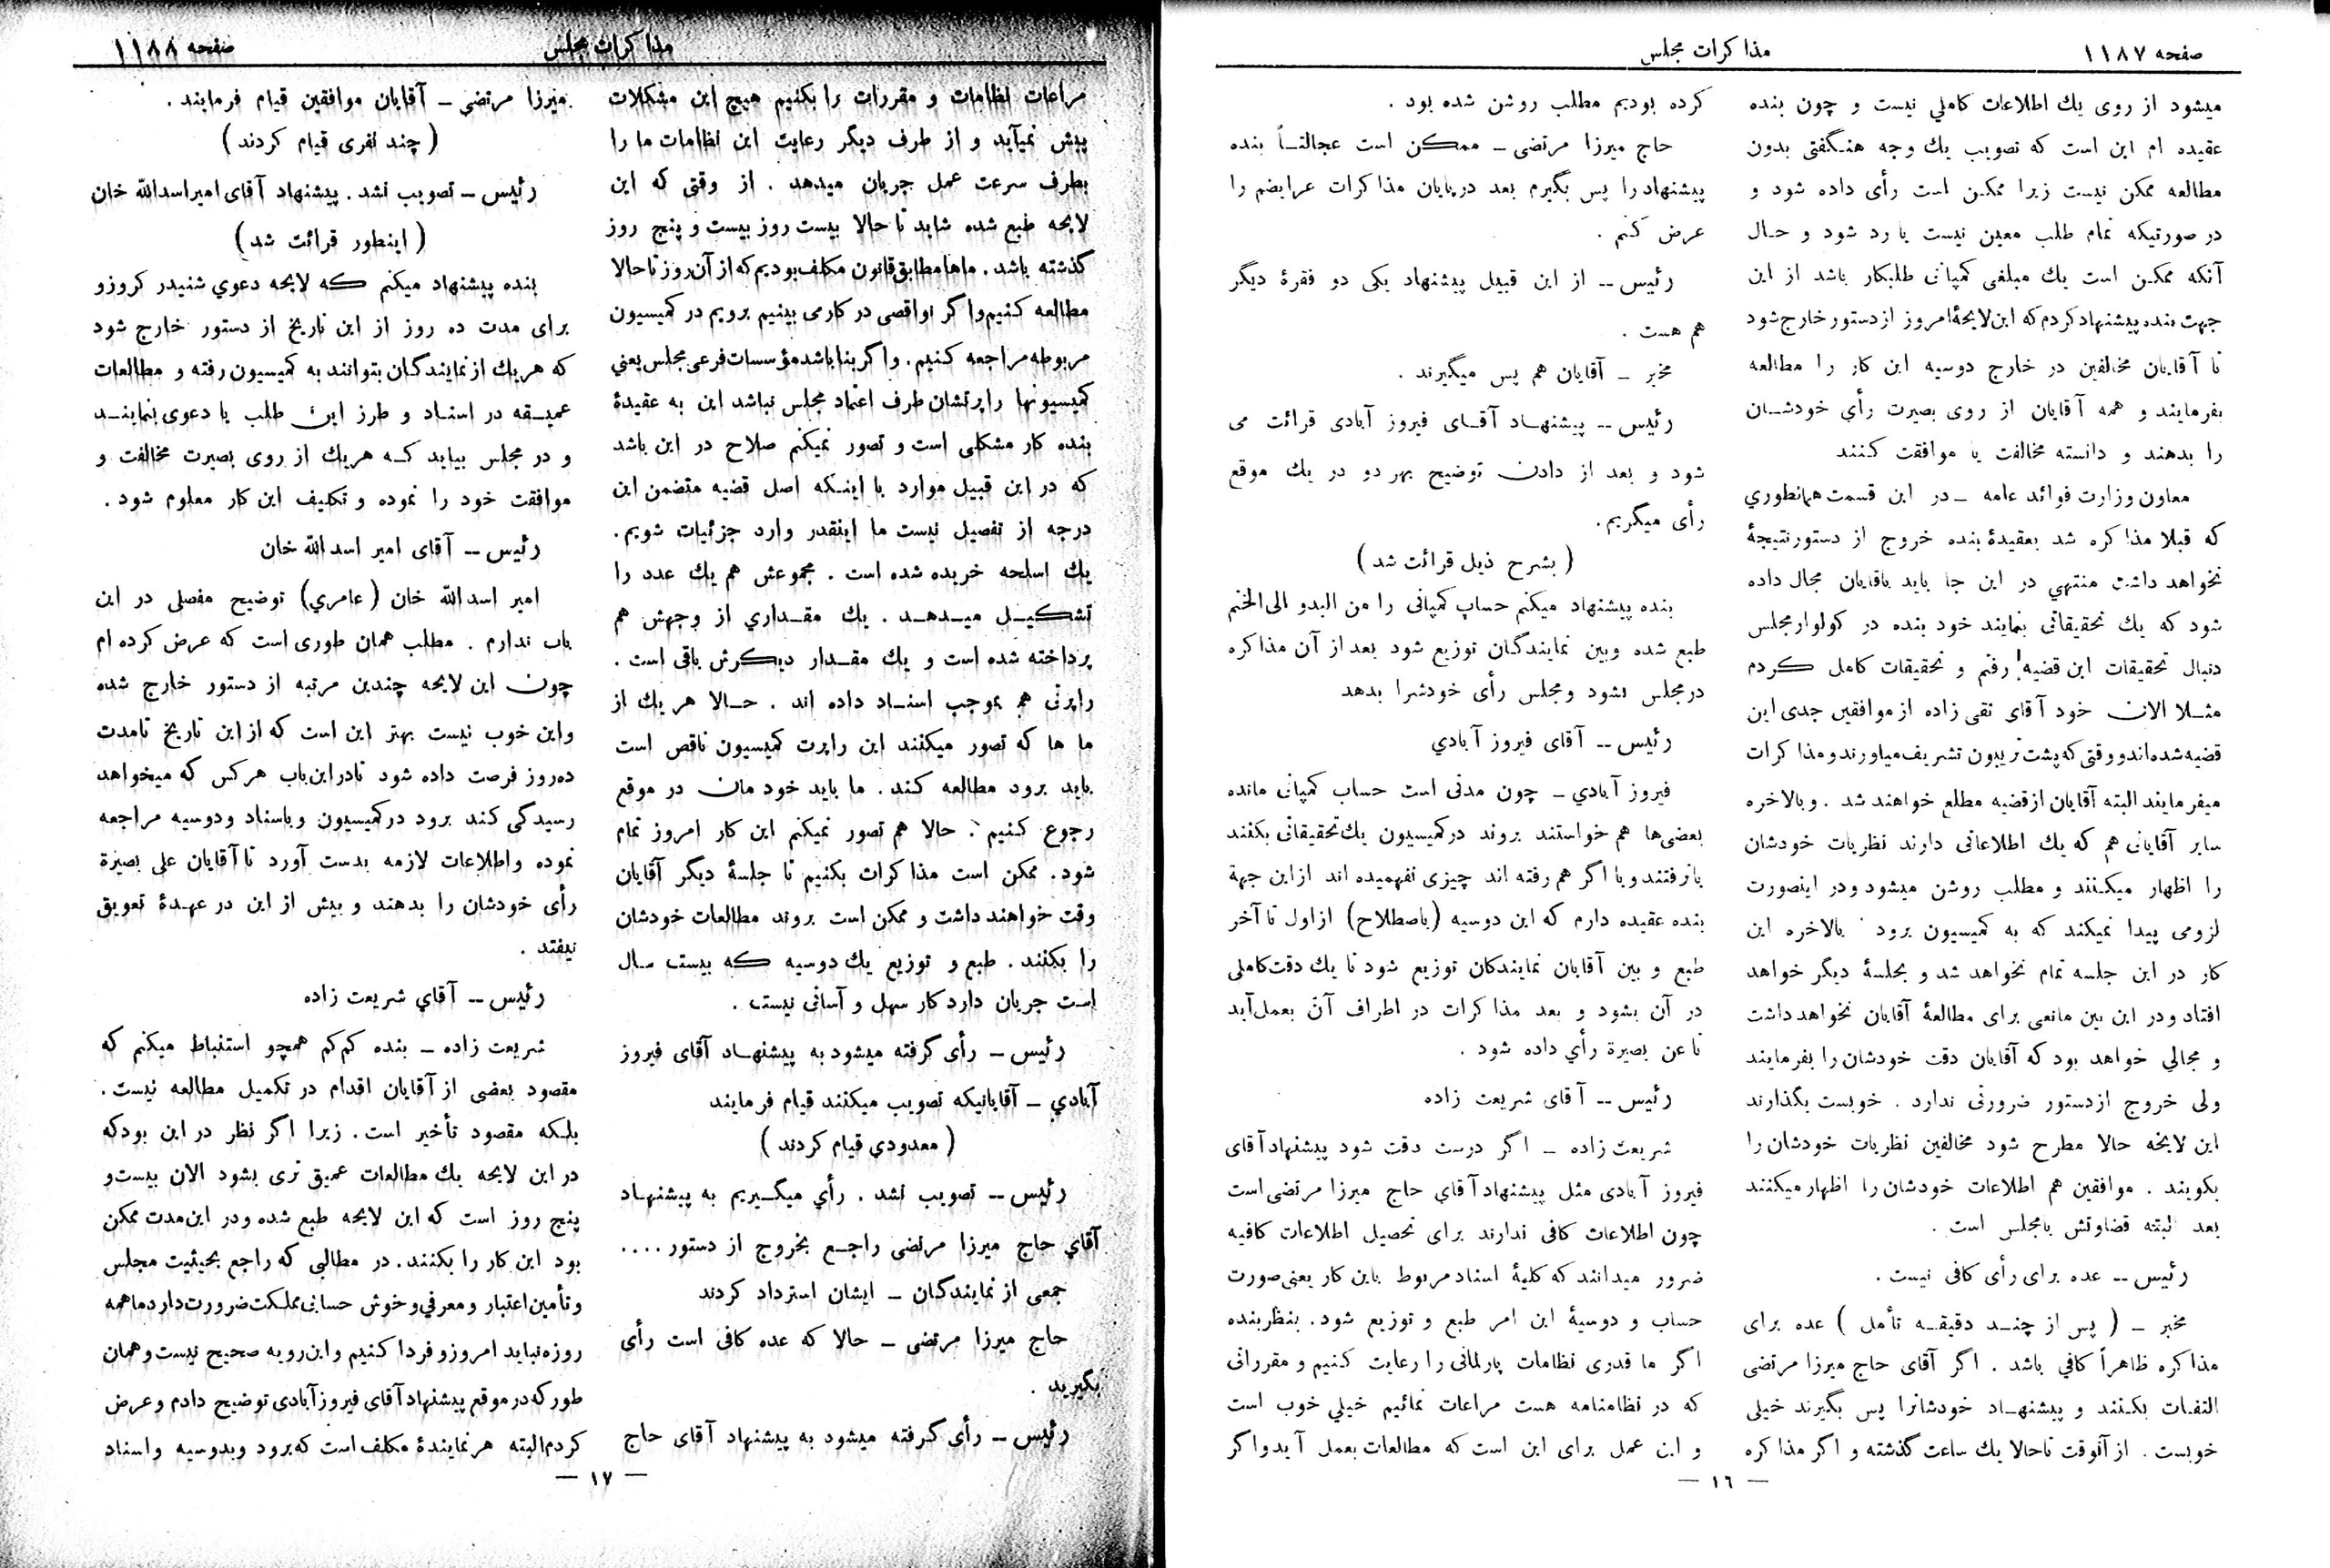 صفحه ۱۱۸۷
مذاکرات مجلس
میشود از روی یك اطلاعات کاملی نیست و چون بنده
عقیده ام این است که تصویب یك وجه هنگفتی بدون
مطالعه ممکن نیست زیرا ممکن است رأی داده شود و
در صورتیکه تمام طلب معین نیست یا رد شود و حال
آنکه ممکن است یك مبلغی کمپانی طلبکار باشد از این
جهت بنده پیشنهاد کردم که این لایحهٔ امروز از دستور خارج شود
تا آقایان مخالفین در خارج دوسیه این کار را مطالعه
بفرمایند و همه آقایان از روی بصیرت رأی خودشان
را بدهند و دانسته مخالفت یا موافقت کنند
معاون وزارت فوائد عامه ـ در این قسمت همانطوری
که قبلا مذاکره شد بعقیدهٔ بنده خروج از دستور نتیجهٔ
نخواهد داشت منتهی در این جا باید بآقایان مجال داده
شود که یك تحقیقاتی بنمایند خود بنده در کولوار مجلس
دنبال تحقیقات این قضیه رفتم و تحقیقات کامل کردم
مثلا الان خود آقای تقی زاده از موافقین جدی این
قضیه شده‌اند و وقتی که پشت تریبون تشریف میاورند و مذاکرات
میفرمایند البته آقایان از قضیه مطلع خواهند شد . و بالاخره
سایر آقایانی هم که یك اطلاعاتی دارند نظریات خودشان
را اظهار میکنند و مطلب روشن میشود و در اینصورت
لزومی پیدا نمیکند که به کمیسیون برود بالاخره این
کار در این جلسه تمام نخواهد شد و بجلسهٔ دیگر خواهد
افتاد و در این بین مانعی برای مطالعهٔ آقایان نخواهد داشت
و مجالی خواهد بود که آقایان دقت خودشان را بفرمایند
ولی خروج از دستور ضرورتی ندارد . خوبست بگذارند
این لایحه حالا مطرح شود مخالفین نظریات خودشان را
بگویند . موافقین هم اطلاعات خودشان را اظهار میکنند
بعد البته قضاوتش بامجلس است .
رئیس ــ عده برای رأی کافی نیست .
مخبر ـ ( پس از چند دقیقه تأمل ) عده برای
مذاکره ظاهراً کافی باشد . اگر آقای حاج میرزا مرتضی
التفات بکنند و پیشنهاد خودشانرا پس بگیرند خیلی
خوبست . از آنوقت تا حالا یك ساعت گذشته و اگر مذاکره
کرده بودیم مطلب روشن شده بود .
حاج میرزا مرتضی ـ ممکن است عجالتاً بنده
پیشنهاد را پس بگیرم بعد در پایان مذاکرات عرایضم را
عرض کنم .
رئیس ــ از این قبیل پیشنهاد یکی دو فقرهٔ دیگر
هم هست .
مخبر ـ آقایان هم پس میگیرند .
رئیس ــ پیشنهاد آقای فیروز آبادی قرائت می
شود و بعد از دادن توضیح بهر دو در یك موقع
رأی میگیریم.
( بشرح ذیل قرائت شد )
بنده پیشنهاد میکنم حساب کمپانی را من البدو الی الختم
طبع شده و بین نمایندگان توزیع شود بعد از آن مذاکره
در مجلس بشود و مجلس رأی خودشرا بدهد
رئیس ــ آقای فیروز آبادي
فیروز آبادي ـ چون مدتی است حساب کمپانی مانده
بعضی‌ها هم خواستند بروند در کمیسیون یك تحقیقاتی بکنند
یا نرفتند و یا اگر هم رفته اند چیزی نفهمیده اند از این جهة
بنده عقیده دارم که این دوسیه (باصطلاح) از اول تا آخر
طبع و بین آقایان نمایندکان توزیع شود تا یك دقت کاملی
در آن بشود و بعد مذاکرات در اطراف آن بعمل آید
تا عن بصیرة رأي داده شود .
رئیس ــ آقای شریعت زاده
شریعت زاده ـ اگر درست دقت شود پیشنهاد آقای
فیروز آبادی مثل پیشنهاد آقاي حاج میرزا مرتضی است
چون اطلاعات کافی ندارند برای تحصیل اطلاعات کافیه
ضرور میدانند که کلیهٔ اسناد مربوط باین کار یعنی صورت
حساب و دوسیهٔ این امر طبع و توزیع شود . بنظر بنده
اگر ما قدری نظامات پارلمانی را رعایت کنیم و مقرراتی
که در نظامنامه هست مراعات نمائیم خیلی خوب است
و این عمل برای این است که مطالعات بعمل آید و اگر
— ١٦ —
صفحه ۱۱۸۸
مذاکرات مجلس
مراعات نظامات و مقررات را بکنیم هیچ این مشکلات
پیش نمیآید و از طرف دیگر رعایت این نظامات ما را
بطرف سرعت عمل جریان میدهد . از وقتی که این
لایحه طبع شده شاید تا حالا بیست روز بیست و پنج روز
گذشته باشد . ماها مطابق قانون مکلف بودیم که از آن روز تا حالا
مطالعه کنیم و اگر نواقصی در کار می بینیم برویم در کمیسیون
مربوطه مراجعه کنیم . و اگر بنا باشد مؤسسات فرعی مجلس یعنی
کمیسیونها راپرتشان طرف اعتماد مجلس نباشد این به عقیدهٔ
بنده کار مشکلی است و تصور نمیکنم صلاح در این باشد
که در این قبیل موارد با اینکه اصل قضیه متضمن این
درجه از تفصیل نیست ما اینقدر وارد جزئیات شویم .
یك اسلحه خریده شده است . مجموعش هم یك عدد را
تشکیل میدهد . یك مقداري از وجهش هم
پرداخته شده است و یك مقدار دیگرش باقی است .
راپرتی هم بموجب اسناد داده اند . حالا هر یك از
ما ها که تصور میکنند این راپرت کمیسیون ناقص است
باید برود مطالعه کند . ما باید خود مان در موقع
رجوع کنیم . حالا هم تصور نمیکنم این کار امروز تمام
شود . ممکن است مذاکرات بکنیم تا جلسهٔ دیگر آقایان
وقت خواهند داشت و ممکن است بروند مطالعات خودشان
را بکنند . طبع و توزیع یك دوسیه که بیست سال
است جریان دارد کار سهل و آسانی نیست .
رئیس ــ رأی گرفته میشود به پیشنهاد آقای فیروز
آبادي ـ آقایانیکه تصویب میکنند قیام فرمایند
( معدودي قیام کردند )
رئیس ــ تصویب نشد . رأي میگیریم به پیشنهاد
آقاي حاج میرزا مرتضی راجع بخروج از دستور ....
جمعی از نمایندگان ـ ایشان استرداد کردند
حاج میرزا مرتضی ـ حالا که عده کافی است رأی
بگیرید .
رئیس ــ رأی گرفته میشود به پیشنهاد آقای حاج
میرزا مرتضی ـ آقایان موافقین قیام فرمایند .
( چند نفری قیام کردند )
رئیس ــ تصویب نشد . پیشنهاد آقای امیر اسدالله خان
( اینطور قرائت شد )
بنده پیشنهاد میکنم که لایحه دعوي شنیدر کروزو
برای مدت ده روز از این تاریخ از دستور خارج شود
که هر یك از نمایندگان بتوانند به کمیسیون رفته و مطالعات
عمیقه در اسناد و طرز این طلب یا دعوی بنمایند
و در مجلس بیاید که هر یك از روی بصیرت مخالفت و
موافقت خود را نموده و تکلیف این کار معلوم شود .
رئیس ــ آقای امیر اسد الله خان
امیر اسد الله خان ( عامري) توضیح مفصلی در این
باب ندارم . مطلب همان طوری است که عرض کرده ام
چون این لایحه چندین مرتبه از دستور خارج شده
و این خوب نیست بهتر این است که از این تاریخ تا مدت
ده روز فرصت داده شود تا در این باب هر کس که میخواهد
رسیدگی کند برود در کمیسیون و باسناد و دوسیه مراجعه
نموده و اطلاعات لازمه بدست آورد تا آقایان علی بصیرة
رأی خودشان را بدهند و بیش از این در عهدهٔ تعویق
نیفتد .
رئیس ــ آقاي شریعت زاده
شریعت زاده ـ بنده کم‌کم همچو استنباط میکنم که
مقصود بعضی از آقایان اقدام در تکمیل مطالعه نیست .
بلکه مقصود تأخیر است . زیرا اگر نظر در این بود که
در این لایحه یك مطالعات عمیق تری بشود الان بیست و
پنج روز است که این لایحه طبع شده و در این مدت ممکن
بود این کار را بکنند . در مطالبی که راجع بحیثیت مجلس
و تأمین اعتبار و معرفی و خوش حسابی مملکت ضرورت دارد ما همه
روزه نباید امروز و فردا کنیم و این رویه صحیح نیست و همان
طور که در موقع پیشنهاد آقای فیروز آبادی توضیح دادم و عرض
کردم البته هر نمایندهٔ مکلف است که برود و بدوسیه و اسناد
— ١٧ —